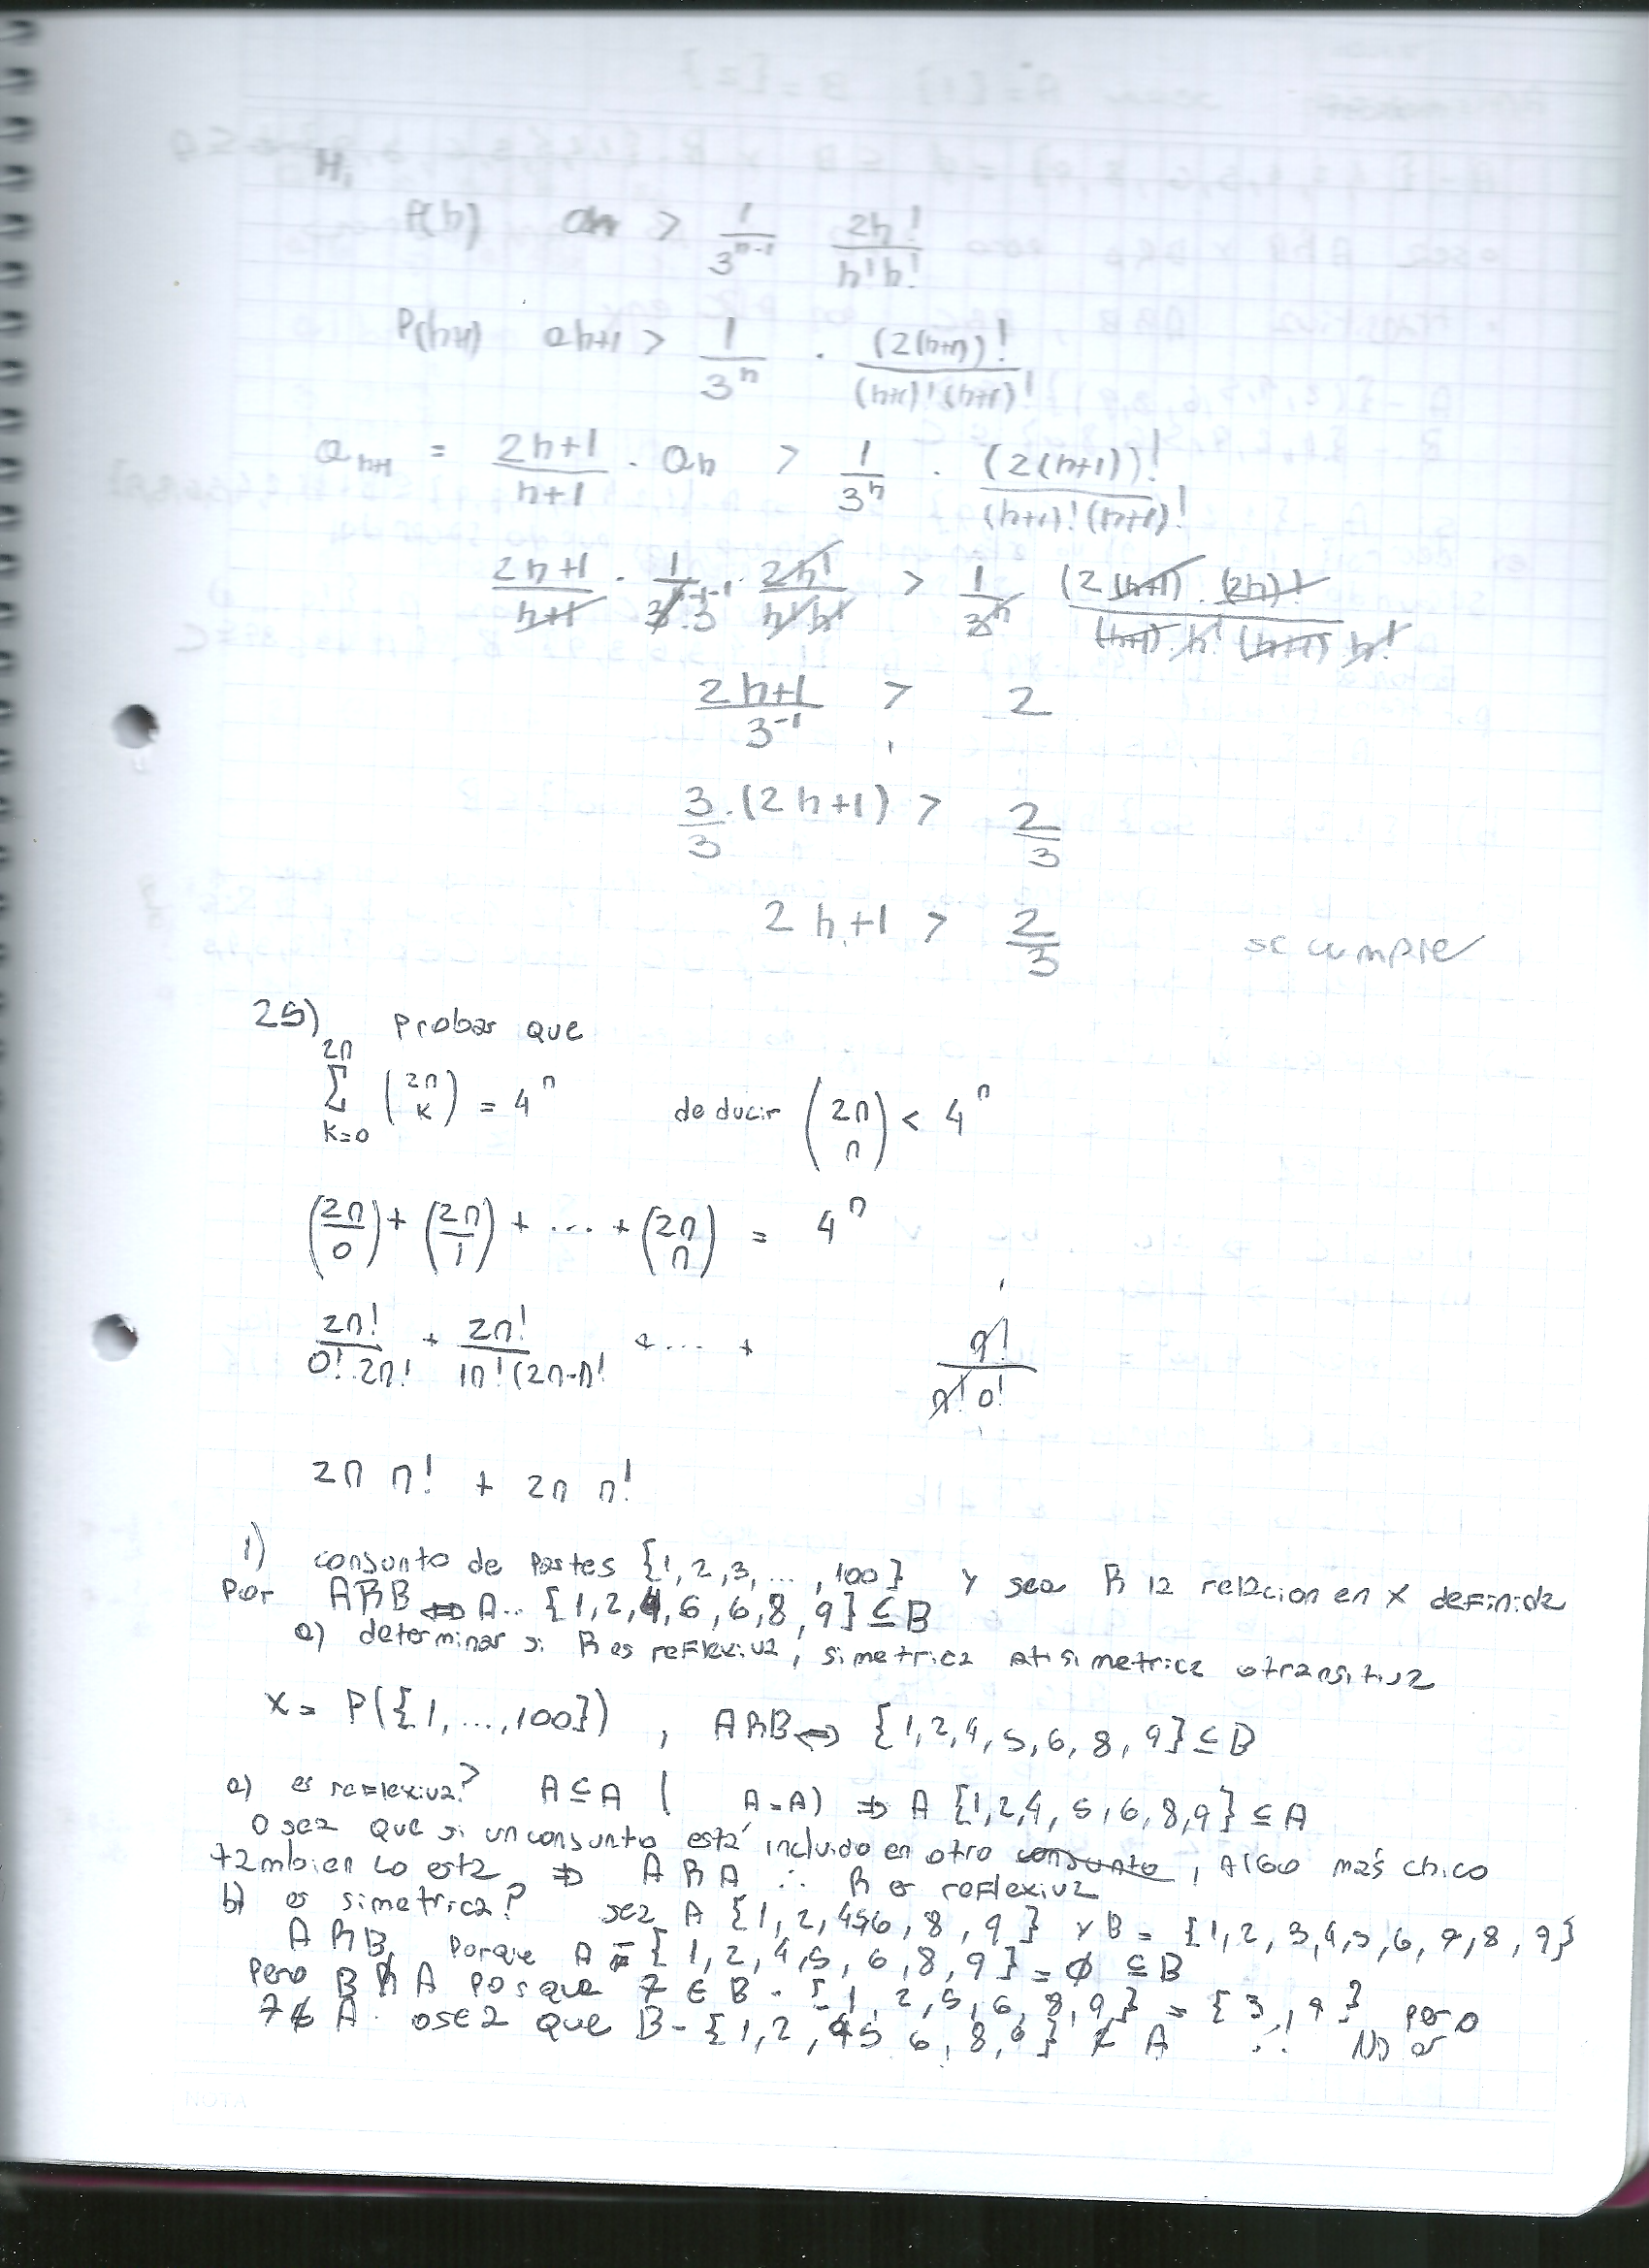 Hi
P(h) an > 1/3^(n-1) 2h!/h!h!
P(h+1) ah+1 > 1/3^n · (2(h+1))!/(h+1)!(h+1)!
a_h+1 = 2h+1/h+1 · ah > 1/3^n · (2(h+1))!/(h+1)!(h+1)!
2h+1/h+1 · 1/3^n·3^-1 · 2h!/h!h! > 1/3^n (2(h+1)·(2h)!/(h+1)·h!(h+1)·h!
2h+1/3^-1 > 2
3/3·(2h+1) > 2/3
2h+1 > 2/3 se cumple
25) Probar que
2n Σ k=0 (2n k) = 4^n deducir (2n n) < 4^n
(2n/0) + (2n/1) + ... + (2n n) = 4^n
2n!/0!·2n! + 2n!/1n!(2n-n! + ... + n!/n!0!
2n n! + 2n n!
1) conjunto de Partes {1,2,3,...,100} y sea R la relacion en X definida
Por ARB ⟺ A.. {1,2,4,5,6,8,9} ⊆ B
a) determinar si R es reflexiva, simetrica atisimetrica o transitiva
X = P({1,...,100}) , ARB ⟺ {1,2,4,5,6,8,9} ⊆ B
a) es reflexiva? A⊆A ( A=A) ⇒ A {1,2,4,5,6,8,9} ⊆ A
O sea que si un conjunto está incluido en otro conjunto, Algo más chico
tambien lo esta ⇒ ARA ∴ R es reflexiva
b) es simetrica? sea A {1,2,456,8,9} y B = {1,2,3,4,5,6,7,8,9}
ARB, Porque A = {1,2,4,5,6,8,9} = ∅ ⊆ B
Pero B R A Porque 7 ∈ B - {1,2,5,6,8,9} = {3,7} pero
7∉A. osea que B-{1,2,45 6,8,9} ⊄ A ∴ No es